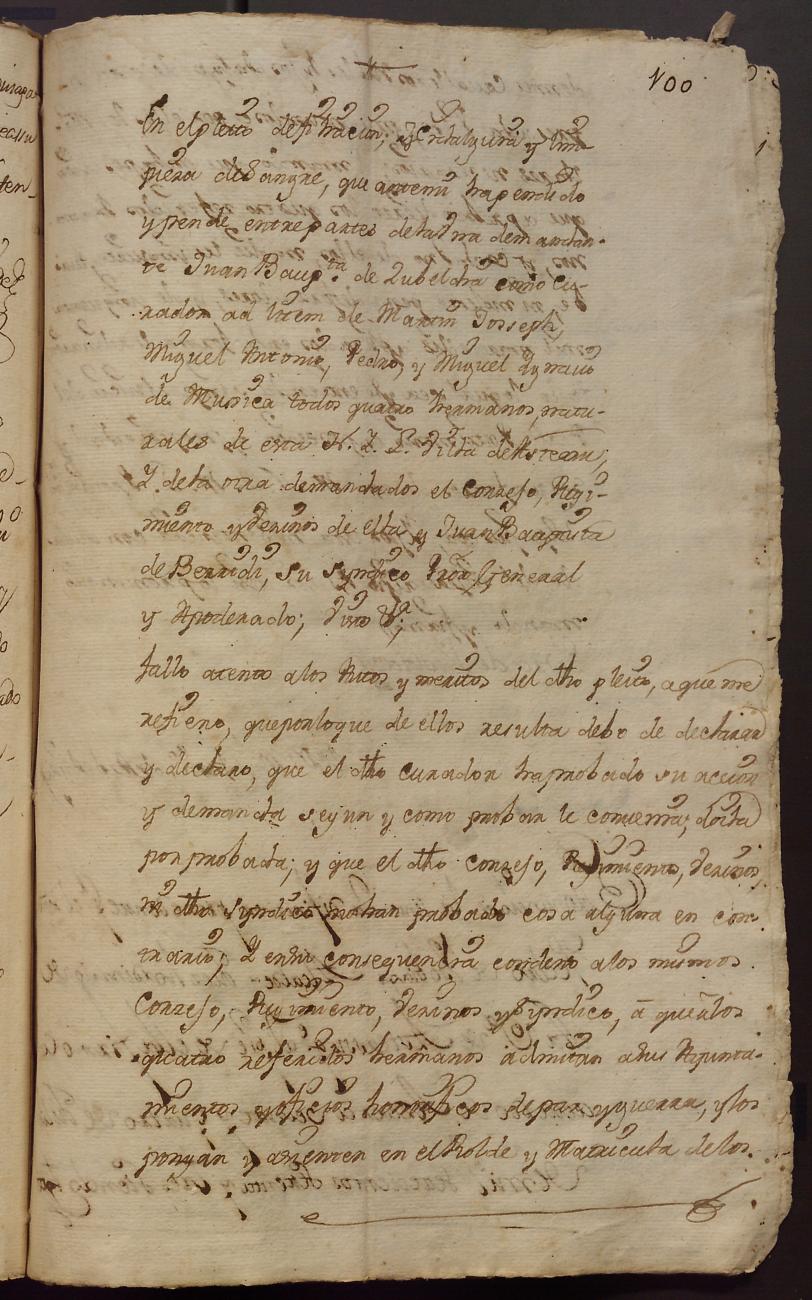 100
En el pleito de filiacion, Hidalguia y lim-
pieza de Sangre, que antemi ha pendido
y pende entre partes dela una demandan-
te Juan Baup.ta de Zubeldia como Cu-
rador ad litem de Martin Josseph,
Miguel Antonio, Pedro, y Miguel Ygnacio
de Mussica todos quatro hermanos, natu-
rales de esta N. y L. Villa de Asteasu,
Y dela otra demandados el Conzejo, Regi-
miento y Vezinos de ella y Juan Baptista
de Berridi, su Syndico Pror General
y Apoderado; Visto &;
fallo atento alos Autos y meritos del dho pleito, aqueme
refiero, que por loque de ellos resulta debo de declarar
y declaro, que el dho Curador ha probado su accion
y demanda segun y como probar le convenia, doila
por probada; y que el dho Conzejo, Regimiento, Vezinos,
ni dho Syndico no han probado cosa alguna en con-
trario; Y en su consequencia condeno alos mismos
Conzejo, Regimiento, Vezinos y Syndico, á que álos
quatro referidos hermanos admitan asus Ayunta-
mientos y oficios honorificos de paz y guerra, y los
pongan y assienten en el Rolde y Matricula de los